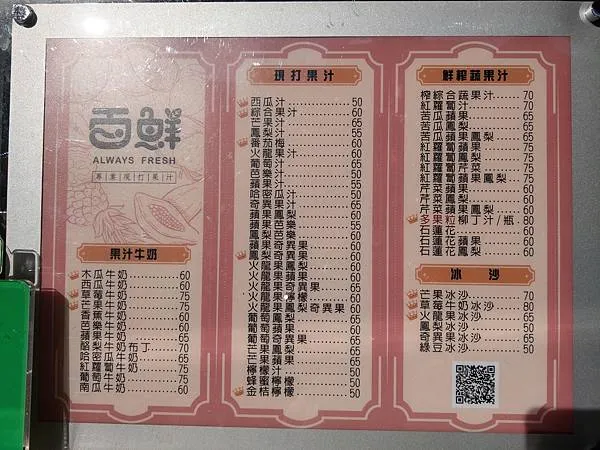 百鮮
ALWAYS FRESH
專業現打果汁
果汁牛奶
木瓜牛奶..........60
西瓜牛奶..........60
草莓牛奶..........75
芒果牛奶..........75
香蕉牛奶..........60
芭樂牛奶..........60
蘋果牛奶..........60
酪梨牛奶布丁......70
哈密瓜牛奶........65
紅蘿蔔牛奶........75
葡萄牛奶..........75
南瓜牛奶..........60
現打果汁
西瓜汁............50
綜合果汁..........60
芒果汁............55
鳳梨汁............55
番茄梅............60
火龍果汁..........60
葡萄汁............65
芭樂汁............50
蘋果汁............55
哈密瓜汁..........50
奇異果汁..........65
蘋果鳳梨..........60
蘋果芭樂..........55
鳳梨芭樂..........60
蘋果奇異果........60
鳳梨奇異果........60
火龍果鳳梨........60
火龍果蘋果........60
火龍果奇異果......65
火龍果檸檬........60
火龍果鳳梨奇異果 60
葡萄鳳梨..........65
葡萄蘋果..........60
葡萄奇異果........65
芒果鳳梨..........60
芒果蘋果..........65
檸檬汁............50
蜂蜜檸檬..........50
金桔檸檬..........50
鮮榨蔬果汁
榨綜合蔬果汁......70
紅蘿蔔汁..........70
苦瓜蘋果..........60
苦瓜鳳梨..........60
苦瓜蘋果鳳梨......60
紅蘿蔔蘋果........75
紅蘿蔔鳳梨........75
紅蘿蔔芹菜........75
紅蘿蔔蘋果鳳梨....75
芹菜蘋果..........60
芹菜鳳梨..........60
芹菜蘋果鳳梨......60
多果粒柳丁汁/瓶..80
石蓮花............60
石蓮花蘋果........60
石蓮花鳳梨........60
冰沙
芒果冰沙..........70
草莓牛奶冰沙......80
火龍果冰沙........60
鳳梨冰沙..........50
奇異果冰沙........65
綠豆冰沙..........50